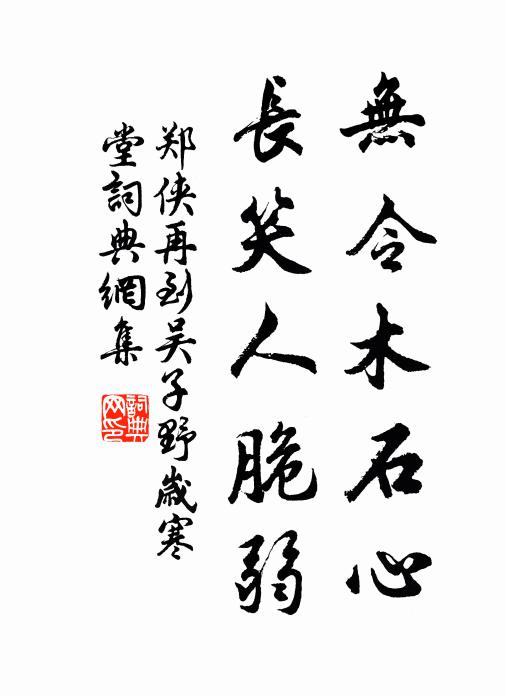 無令木石心
長笑人脆弱
郑侠再到吴子野歲寒
堂詞典網集
詞典网印